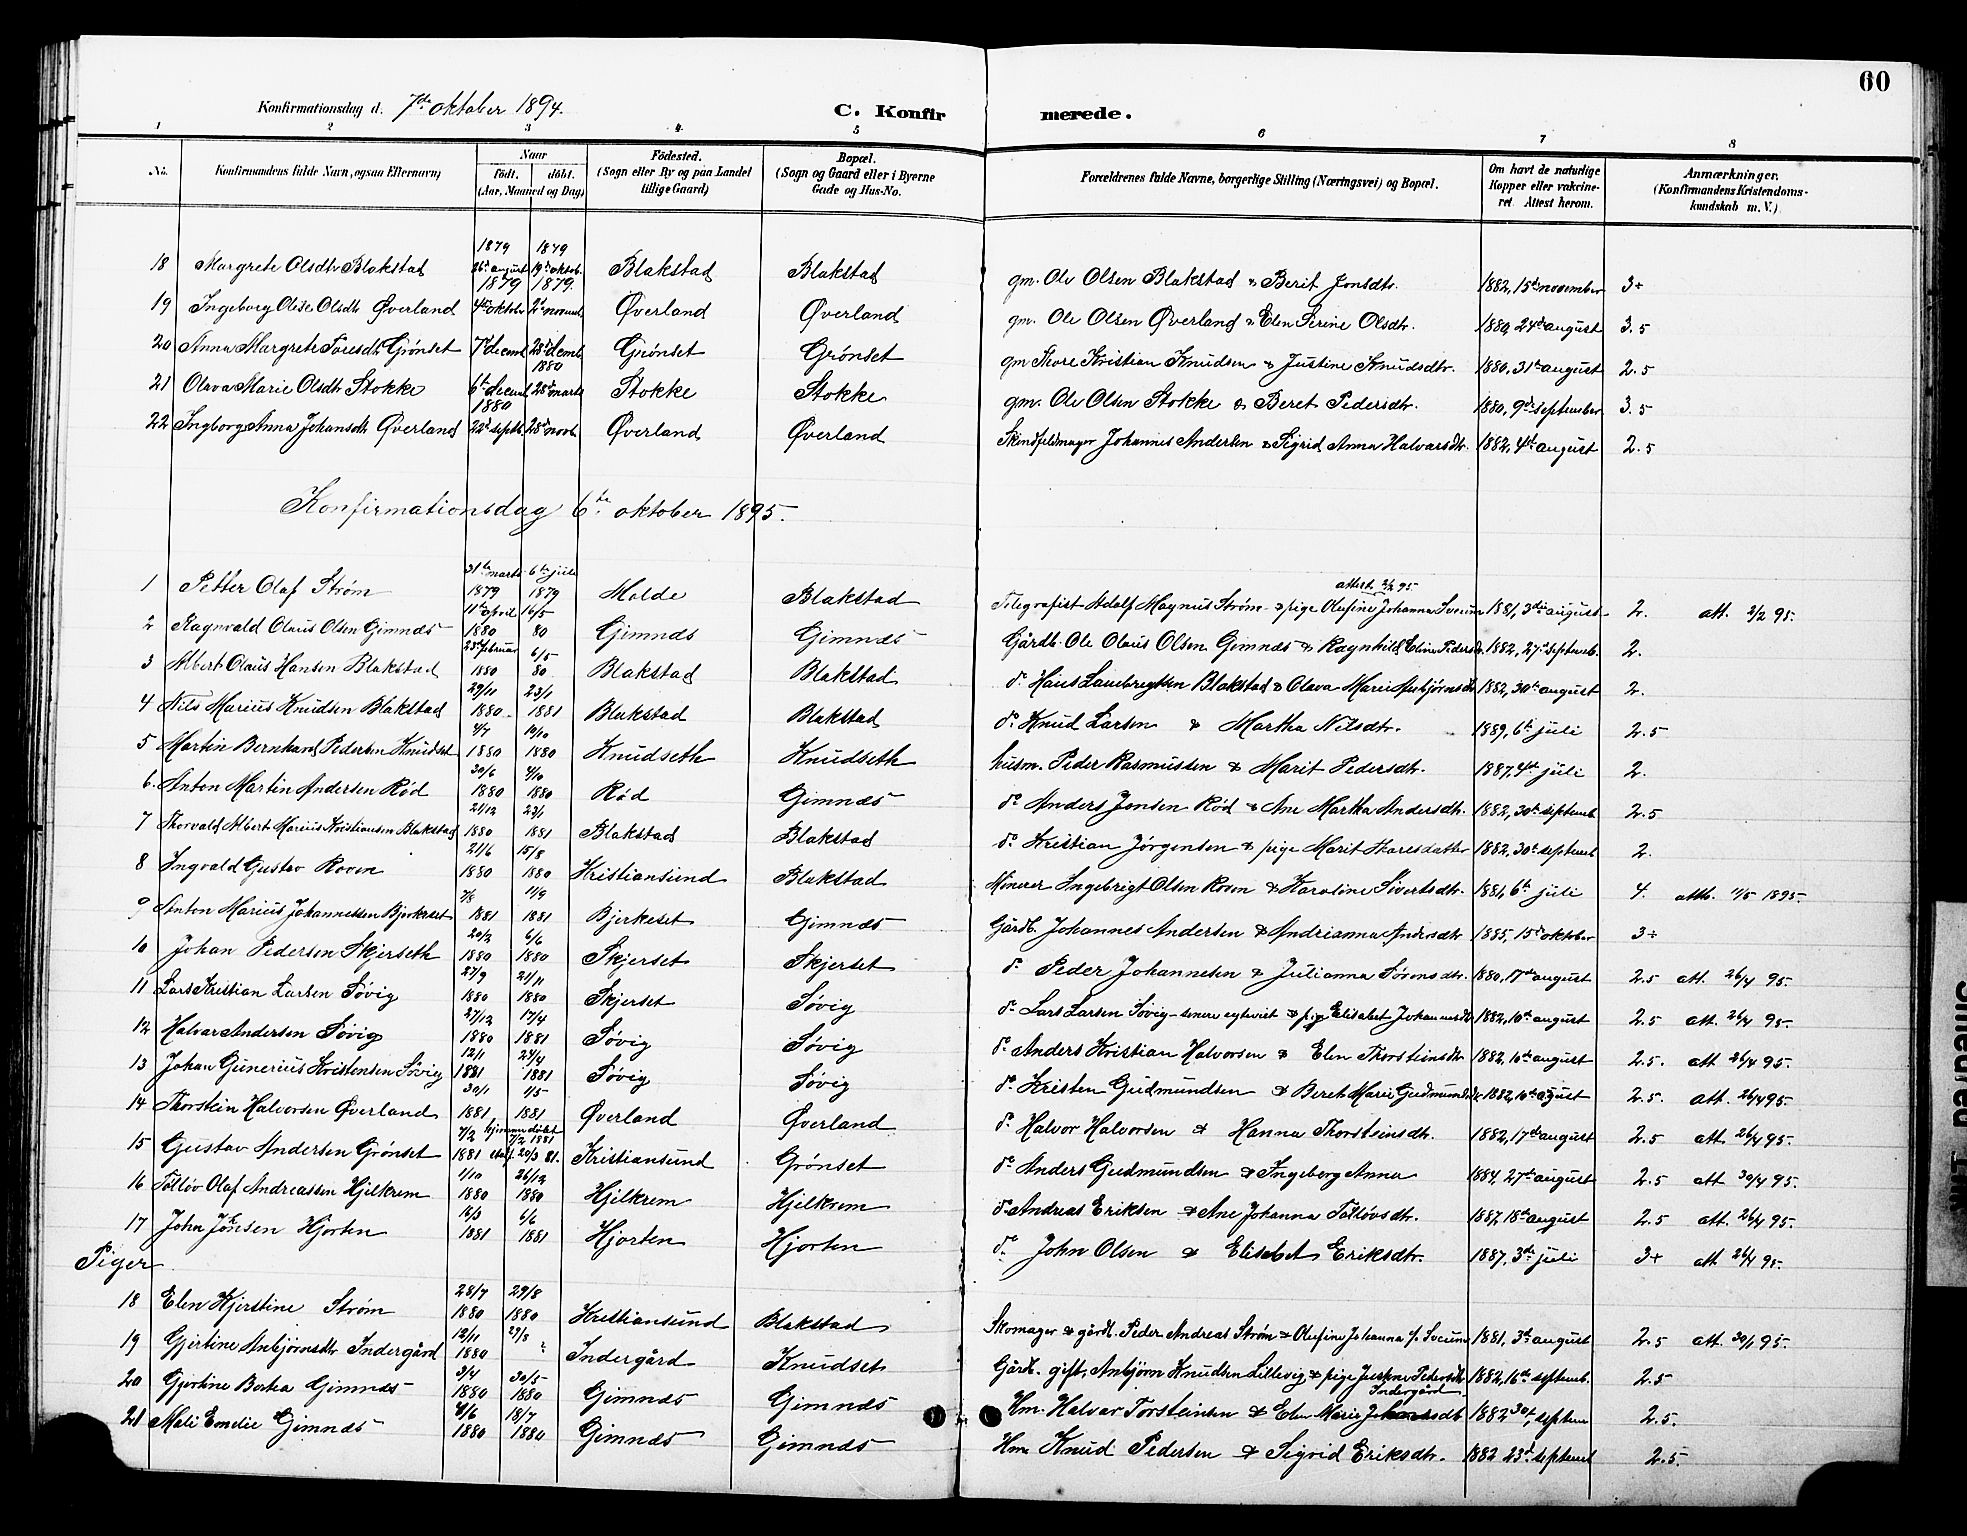 60
Konfirmationsdag d. 7de oktober 1894. C. Konfirmerede.
1 2 3 4 5 6 7 8
No. Konfirmandens fulde Navn, ogsaa Efternavn) Naar født. døbt. (Aar, Maaned og Dag) Fødested. (Sogn eller By og paa Landet tillige Gaard) Bopæl. (Sogn og Gaard eller i Byerne Gade og Hus-No. Forældrenes fulde Navne, borgerlige Stilling (Næringsvei) og Bopæl. Om havt de naturlige Kopper eller vakcineret. Attest herom. Anmærkninger. (Konfirmandens Kristendomskundskab m. V.)
18 Margrete Olsdtr Blakstad 1879 26de august 1879 19de oktob. Blakstad Blakstad gm. Ole Olsen Blakstad & Berit Jonsdtr. 1882, 15de november 3+
19 Ingeborg Olise Olsdtr Øverland 1879 4de oktober 1879. 2de novemb Øverland Øverland gm. Ole Olsen Øverland & Elen Serine Olsdtr. 1880, 24de august 3.5
20 Anna Margrete Toresdtr Grønset 7de decemb 28de decemb Grønset Grønset gm Thore Kristian Knudsen & Justine Knudsdtr. 1880, 31te august 2.5
21 Olava Marie Olsdtr Stokke 6te decemb 1880 28de marts Stokke Stokke gm. Ole Olsen Stokke & Beret Pedersdtr. 1880, 9de september 3.5
22 Ingborg Anna Johansdtr Øverland 1880 22de septb. 28de novb. Øverland Øverland Skindfeldmager Johannes Andersen & Sigrid Anna Halvarsdtr. 1882, 4de august 2.5
Konfirmationsdag 6te oktober 1895.
1 Petter Olaf Strøm 31te marts 1879 6te juli 1879 Molde Blakstad Telegrafist Adolf Magnus Strøm & pige Olufine Johanna attest 2/2 95. 1881, 3die august 2. att. 2/2 95.
2 Ragnvald Olaus Olsen Gimnæs 11te april 1880 16/5 80 Gimnæs Gimnæs Gårdb. Ole Olaus Olsen Gimnæs & Ragnhild Eline Pedersdtr 1882, 27de septemb. 2.
3 Albert Olaus Hansen Blakstad 23de februar 1880 6/5 80 Blakstad Blakstad do Hans Lambregtsen Blakstad & Olava Marie Anbjørnsdtr 1882, 30te august 2.
4 Nils Marius Knudsen Blakstad 29/11 1880 23/1 1881 Blakstad Blakstad do Knud Larsen & Martha Nilsdtr. 1889, 6te juli 2.5
5 Martin Bernhard Pedersen Knudset 4/7 1880 10/10 1880 Knudseth Knudseth husm. Peder Rasmussen & Marit Pedersdtr. 1887, 4de juli 2.
6 Anton Martin Andersen Rød 30/6 1880 4/10 1880 Rød Gimnæs do Anders Jonsen Rød & Ane Martha Andersdtr. 1882, 30te septemb 2.5
7 Thorvald Albert Marius Kristiansen Blakstad 21/12 1880 23/1 1881 Blakstad Blakstad do Kristian Jørgensen & pige Marit Thoresdatter 1882, 30te septemb 2.
8 Ingvald Gustav Roven 21/6 1880 15/8 1880 Kristiansund Blakstad Minerer Ingebrigt Olsen Roven & Karoline Sivertsdtr. 1881, 6te juli 4. att. 1/5 1895.
9 Anton Marius Johannessen Bjerkeset 7/8 1881 11/9 1881 Bjerkeset Gimnæs Gårdb. Johannes Andersen & Andrianna Andersdtr 1885, 15de oktober 3+
10 Johan Pedersen Skjerseth 20/2 1880 6/6 1880 Skjerset Skjerset do Peder Johannesen & Julianna Sørensdtr. 1880, 17de august 2.5 att. 26/4 95.
11 Lars Kristian Larsen Søvig 27/9 1880 21/11 1880 Skjerset Søvig do Lars Larsen Søvig senere egteviet & pige Elisabet Johannesdtr 1882, 10de august 2.5 att. 26/4 95.
12 Halvar Andersen Søvig 27/12 1880 17/4 1881 Søvig Søvig do Anders Kristian Halvorsen & Elen Thorsteinsdtr. 1882, 10de august 2.5. att. 26/4 95.
13 Johan Gunerius Kristensen Søvig 12/1 1881 23/4 1881 Søvig Søvig do Kristen Gudmundsen & Beret Marie Gudmundsdtr 1882, 10de august 2.5. att. 26/4 95.
14 Thorstein Halvorsen Øverland 30/1 1881, 1/5 1881 Øverland Øverland do Halvor Halvorsen & Hanna Thorsteinsdtr. 1882, 17de august 2.5 att. 26/4 95.
15 Gustav Andersen Grønset 7/2 1881 hjemmedøbt 7/2 1881 stadf. 20/3 81. Kristiansund Grønset do Anders Gudmundsen & Ingeborg Anna 1884, 27de august 2.5 att. 30/4 95.
16 Tolløv Olaf Andreassen Hjelkrem 1/10 1880 26/12 1880 Hjelkrem Hjelkrem do Andreas Eriksen & Ane Johanna Tolløvsdtr. 1887, 18de august 2.5 att. 26/4 95.
17 John Jonsen Hjorten 16/3 1881 6/6 1881 Hjorten Hjorten do John Olsen & Elisabet Eriksdtr. 1887, 3die juli 3+ att. 26/4 95.
Piger
18 Elen Kjerstine Strøm 28/7 1880 29/8 1880 Kristiansund Blakstad Skomager & gårdb. Peder Andreas Strøm & Olufine Johanna 1881, 3die august 2.5 att. 30/1 95.
19 Gjertine Anbjørnsdtr Indergård 12/11 1880 27/8 " Indergård Knudset Gårdb. gift, Anbjørn Knudsen Lillevig & pige Justine Pedersdtr Indergård 1882, 16de septemb. 2.5
20 Gjertine Berka Gimnæs 3/4 1880 30/5 1880 Gimnæs Gimnæs Hm. Halvar Torsteinsen & Elen Marie 1882 30te septem 2.5.
21 Mali Emelie Gimnæs 4/6 1880 18/7 1880 Gimnæs Gimnæs Hm Knud Pedersen & Sigrid Eriksdtr. 1882 23de septemb 2.5.